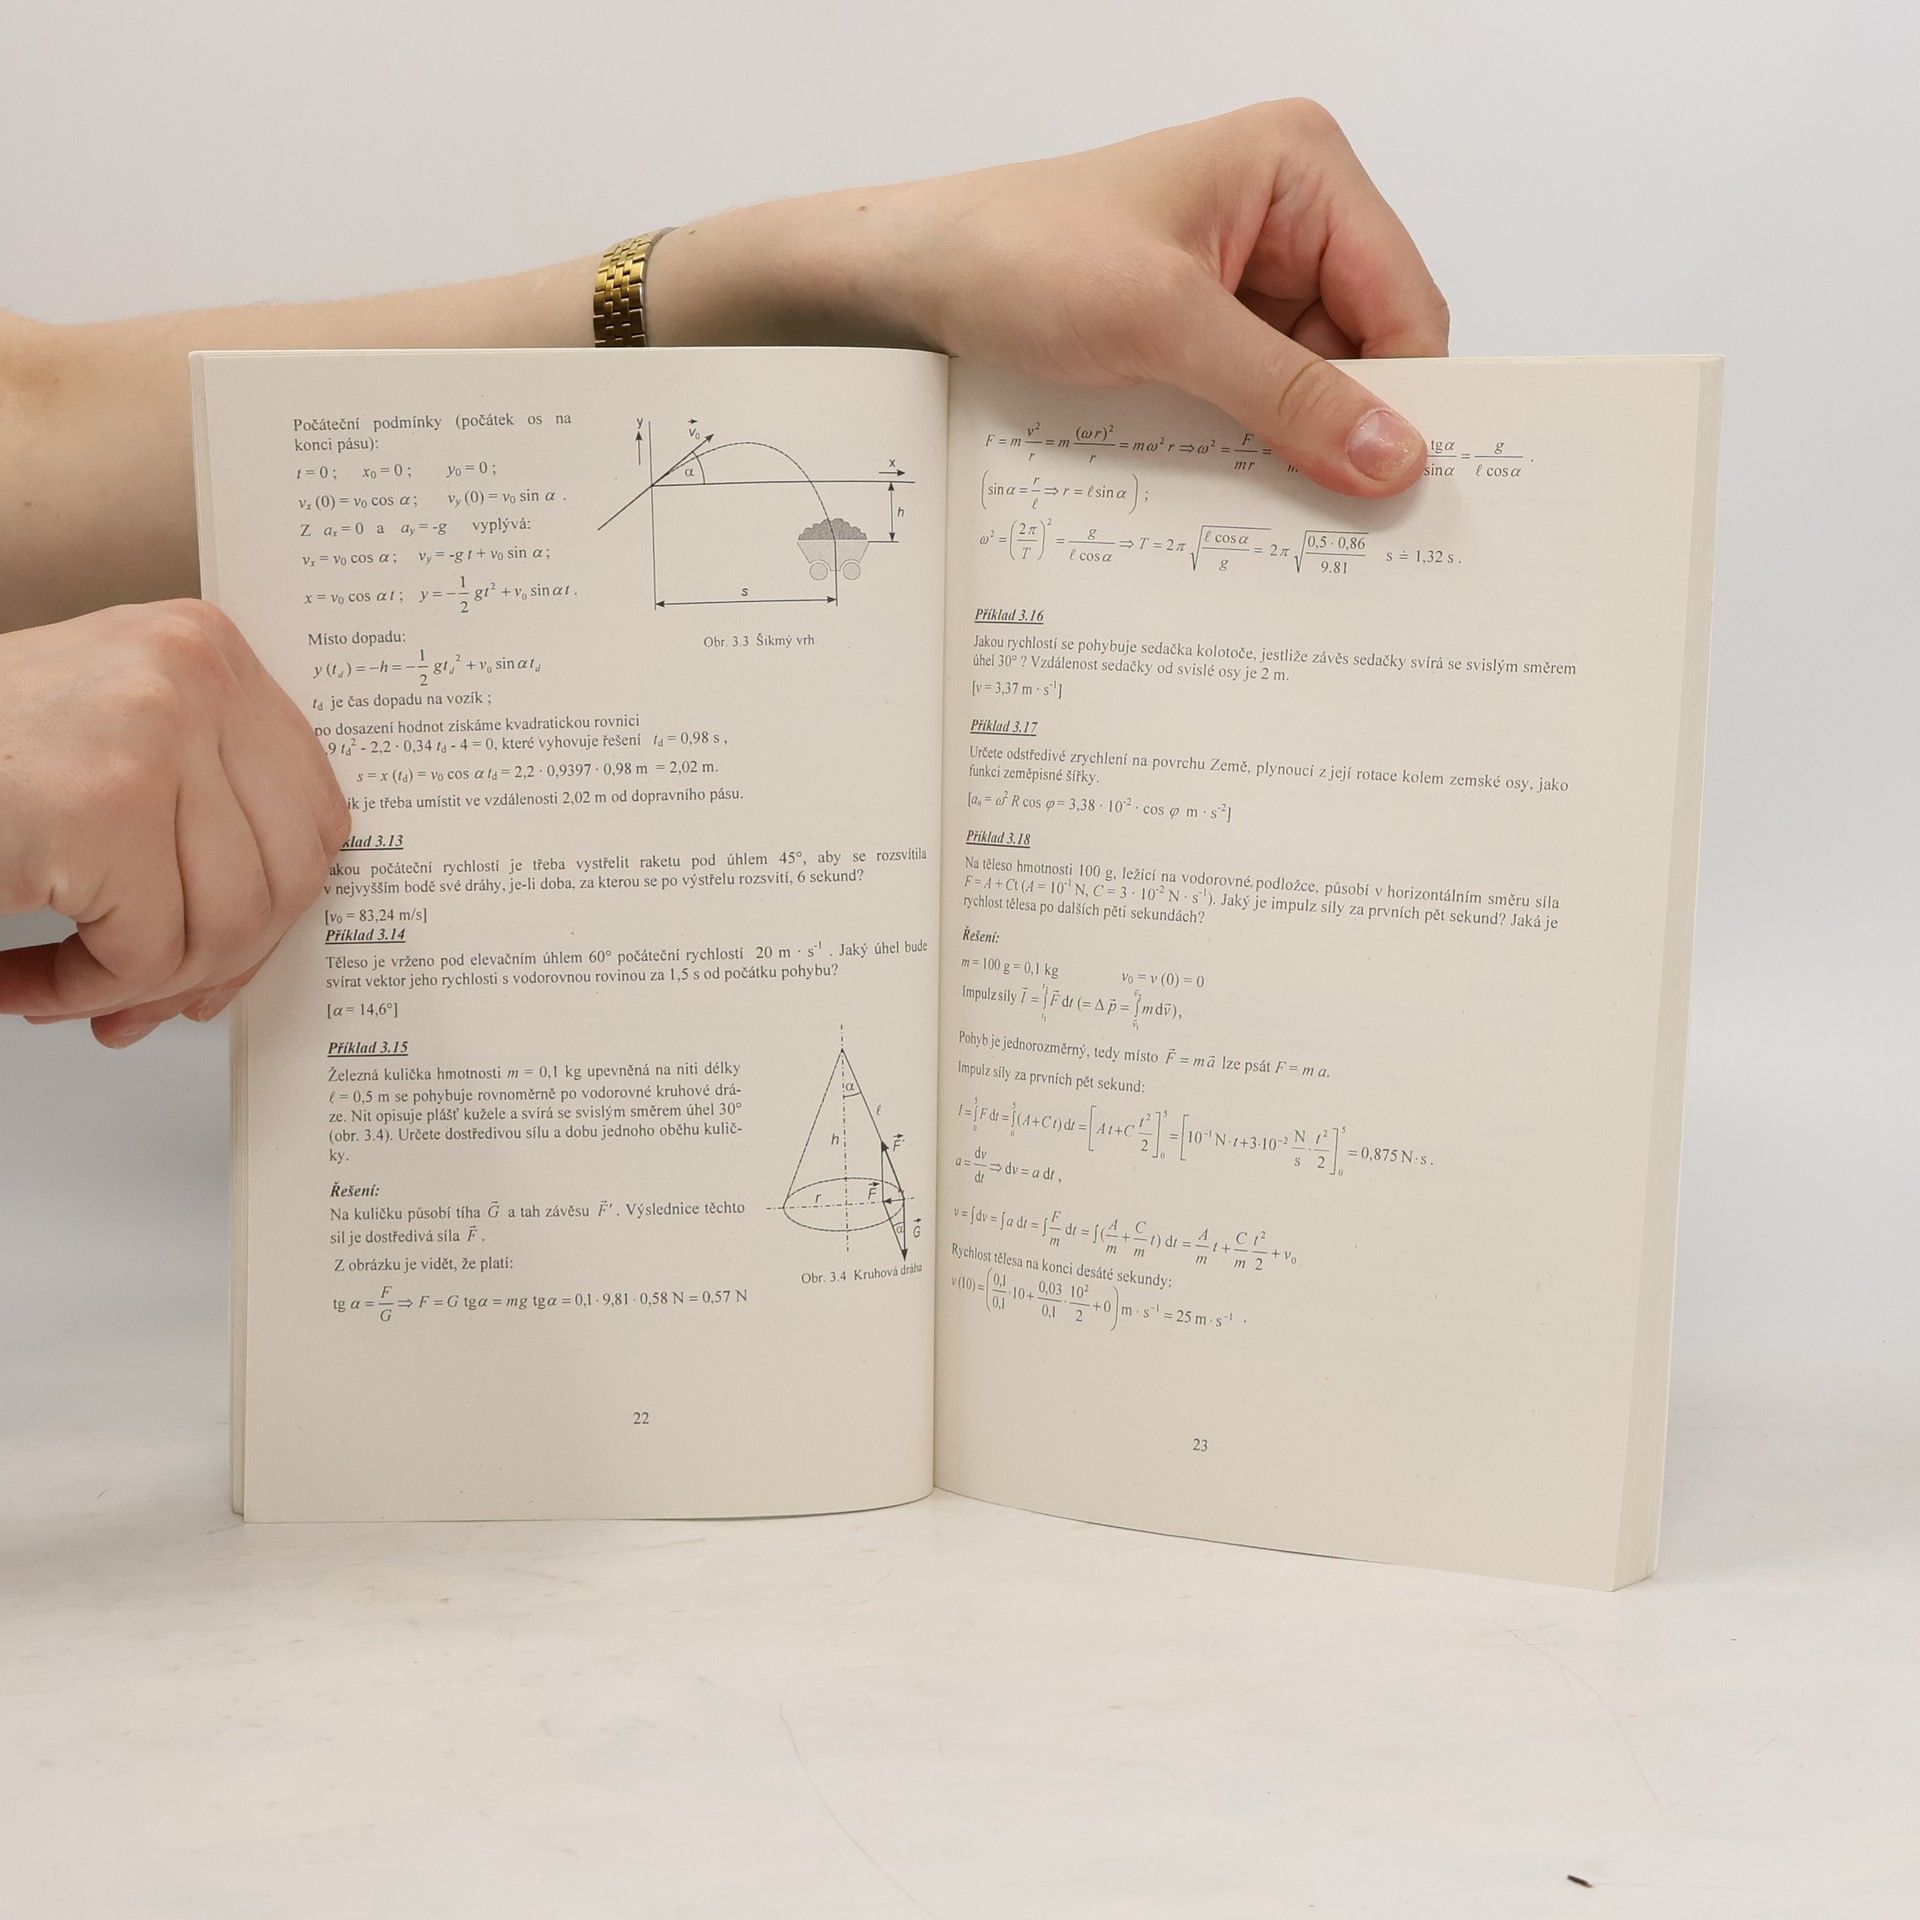 Počáteční podmínky (počátek os na
konci pásu):
t = 0 ; x₀ = 0 ; y₀ = 0 ;
vₓ (0) = v₀ cos α ; v_y (0) = v₀ sin α .
Z aₓ = 0 a a_y = -g vyplývá:
vₓ = v₀ cos α ; v_y = -g t + v₀ sin α ;
x = v₀ cos α t ; y = −1/2 gt² + v₀ sin αt .
y
v₀
α
x
h
s
Obr. 3.3 Šikmý vrh
Místo dopadu:
y (t_d) = −h = −1/2 gt_d² + v₀ sin αt_d
t_d je čas dopadu na vozík ;
po dosazení hodnot získáme kvadratickou rovnici
,9 t_d² - 2,2 · 0,34 t_d - 4 = 0, které vyhovuje řešení t_d = 0,98 s ,
s = x (t_d) = v₀ cos α t_d = 2,2 · 0,9397 · 0,98 m = 2,02 m.
ík je třeba umístit ve vzdálenosti 2,02 m od dopravního pásu.
klad 3.13
akou počáteční rychlostí je třeba vystřelit raketu pod úhlem 45°, aby se rozsvítila
v nejvyšším bodě své dráhy, je-li doba, za kterou se po výstřelu rozsvítí, 6 sekund?
[v₀ = 83,24 m/s]
Příklad 3.14
Těleso je vrženo pod elevačním úhlem 60° počáteční rychlostí 20 m · s⁻¹ . Jaký úhel bude
svírat vektor jeho rychlosti s vodorovnou rovinou za 1,5 s od počátku pohybu?
[α = 14,6°]
Příklad 3.15
Železná kulička hmotnosti m = 0,1 kg upevněná na niti délky
ℓ = 0,5 m se pohybuje rovnoměrně po vodorovné kruhové drá-
ze. Nit opisuje plášť kužele a svírá se svislým směrem úhel 30°
(obr. 3.4). Určete dostředivou sílu a dobu jednoho oběhu kulič-
ky.
Řešení:
Na kuličku působí tíha G⃗ a tah závěsu F⃗' . Výslednice těchto
sil je dostředivá síla F⃗ .
Z obrázku je vidět, že platí:
tg α = F/G ⇒ F = G tgα = mg tgα = 0,1 · 9,81 · 0,58 N = 0,57 N
α
ℓ
h
F⃗'
F⃗
r
α
G⃗
Obr. 3.4 Kruhová dráha
22
F = m v²/r = m (ωr)²/r = mω² r ⇒ ω² = F/mr =
tgα/sinα = g/ℓ cosα .
(sin α = r/ℓ ⇒ r = ℓ sin α) ;
ω² = (2π/T)² = g/ℓ cosα ⇒ T = 2π √(ℓ cosα/g) = 2π √(0,5 · 0,86/9.81) s ≐ 1,32 s .
Příklad 3.16
Jakou rychlostí se pohybuje sedačka kolotoče, jestliže závěs sedačky svírá se svislým směrem
úhel 30° ? Vzdálenost sedačky od svislé osy je 2 m.
[v = 3,37 m · s⁻¹]
Příklad 3.17
Určete odstředivé zrychlení na povrchu Země, plynoucí z její rotace kolem zemské osy, jako
funkci zeměpisné šířky.
[aₙ = ω² R cos φ = 3,38 · 10⁻² · cos φ m · s⁻²]
Příklad 3.18
Na těleso hmotnosti 100 g, ležící na vodorovné podložce, působí v horizontálním směru síla
F = A + Ct (A = 10⁻¹ N, C = 3 · 10⁻² N · s⁻¹). Jaký je impulz síly za prvních pět sekund? Jaká je
rychlost tělesa po dalších pěti sekundách?
Řešení:
m = 100 g = 0,1 kg v₀ = v (0) = 0
Impulz síly I⃗ = ∫_{t₁}^{t₂} F⃗ dt (= Δ p⃗ = ∫_{v⃗₁}^{v⃗₂} m dv⃗),
Pohyb je jednorozměrný, tedy místo F⃗ = m a⃗ lze psát F = m a.
Impulz síly za prvních pět sekund:
I = ∫₀⁵ F dt = ∫₀⁵ (A + C t) dt = [At + C t²/2]₀⁵ = [10⁻¹ N · t + 3·10⁻² N/s · t²/2]₀⁵ = 0,875 N · s .
a = dv/dt ⇒ dv = a dt ,
v = ∫dv = ∫a dt = ∫F/m dt = ∫(A/m + C/m t) dt = A/m t + C/m t²/2 + v₀
Rychlost tělesa na konci desáté sekundy:
v (10) = (0,1/0,1 · 10 + 0,03/0,1 · 10²/2 + 0) m · s⁻¹ = 25 m · s⁻¹ .
23